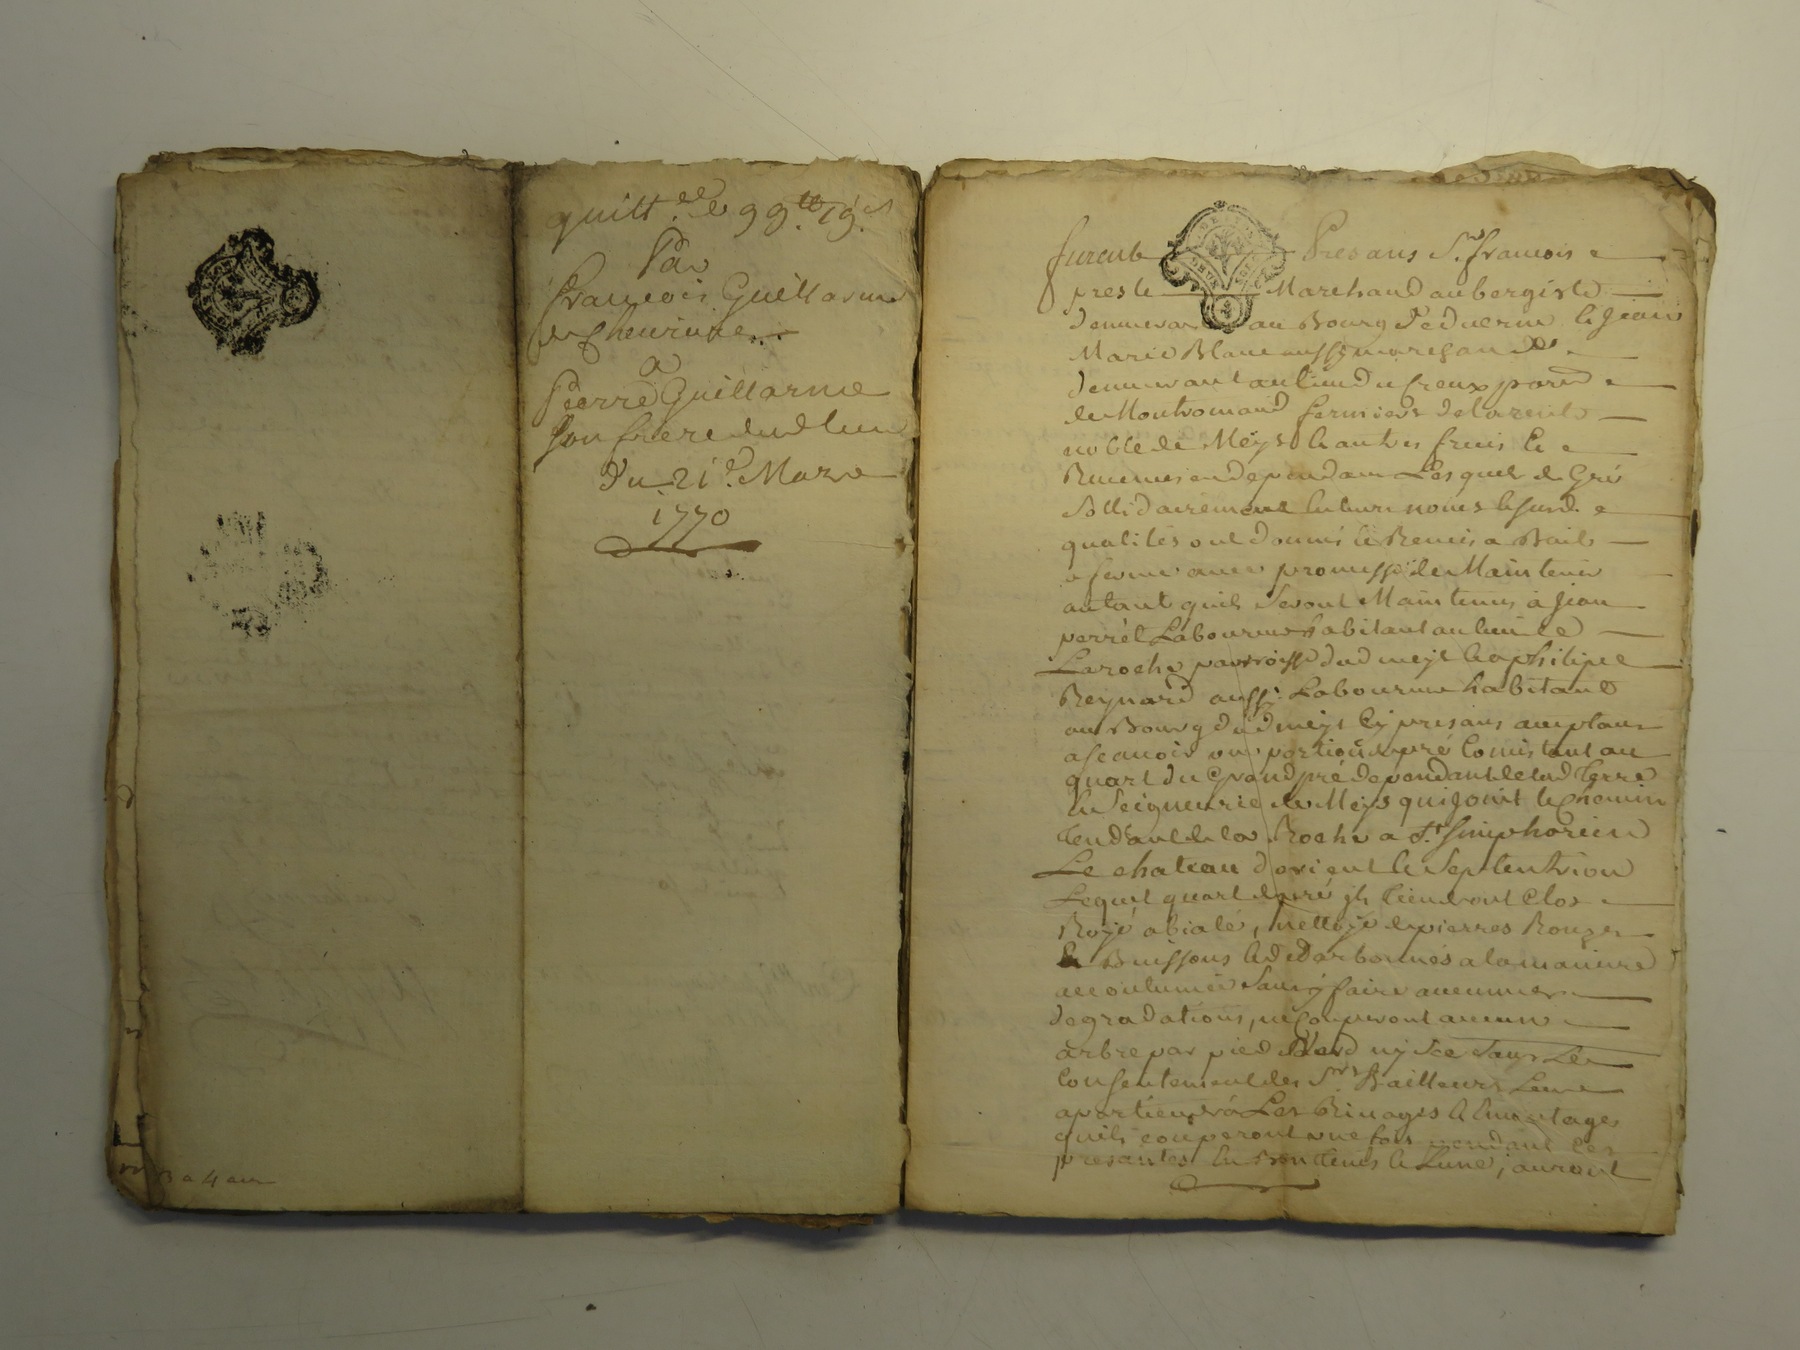 quitt.ce de 99.tt 19.s
Par
francois Guillarme
de Chevinne
a
Pierre Guillarme
son frere dud lieu
du 21.e Mars
1770
furent Presans Sr. francois
presle Marchand aubergiste
demeurant au Bourg de duerne & Jean
Marie Blanc aussy marchand
demeurant au lieu du freux par.d
de Montromand fermiers de la rente
noble de Meys & autres fruis &
Revenus en dependant Lesquels de Gré
Sollidairement en leurs noms & susd.
qualités ont donnés & Remis a Bail
a ferme avec promesse de Maintenir
autant quils Seront Maintenus a Jean
perrét Laboureur habitant au lieu de
Laroche parroisse dud meys & a philipe
Reynard aussi Laboureur habitant
au Bourg dud meys Cy presans acceptans
a scavoir une portion de pré Consistant au
quart du Grand pré dependant de lad terre
& Seigneurie de Meys qui Joint le Chemin
tendant de la Roche a St. Simphorien
Le chateau d'orient & Septentrion
Lequel quart de pré ils tiendront Clos
Rayé abialé, nettoyé de pierres Ronzes
& Buissons & dedarbonnés a la maniere
accoutumée Sans y faire aucunes
degradations, ne Couperont aucun
arbre par pied Verd ny Sec Sans Le
Consentement des Srs. Bailleurs Leur
apartiendra Les Binages & Emontages
quils couperont une fois pendant les
presantes En bon tems & Lune, auront
3 a 4 eme